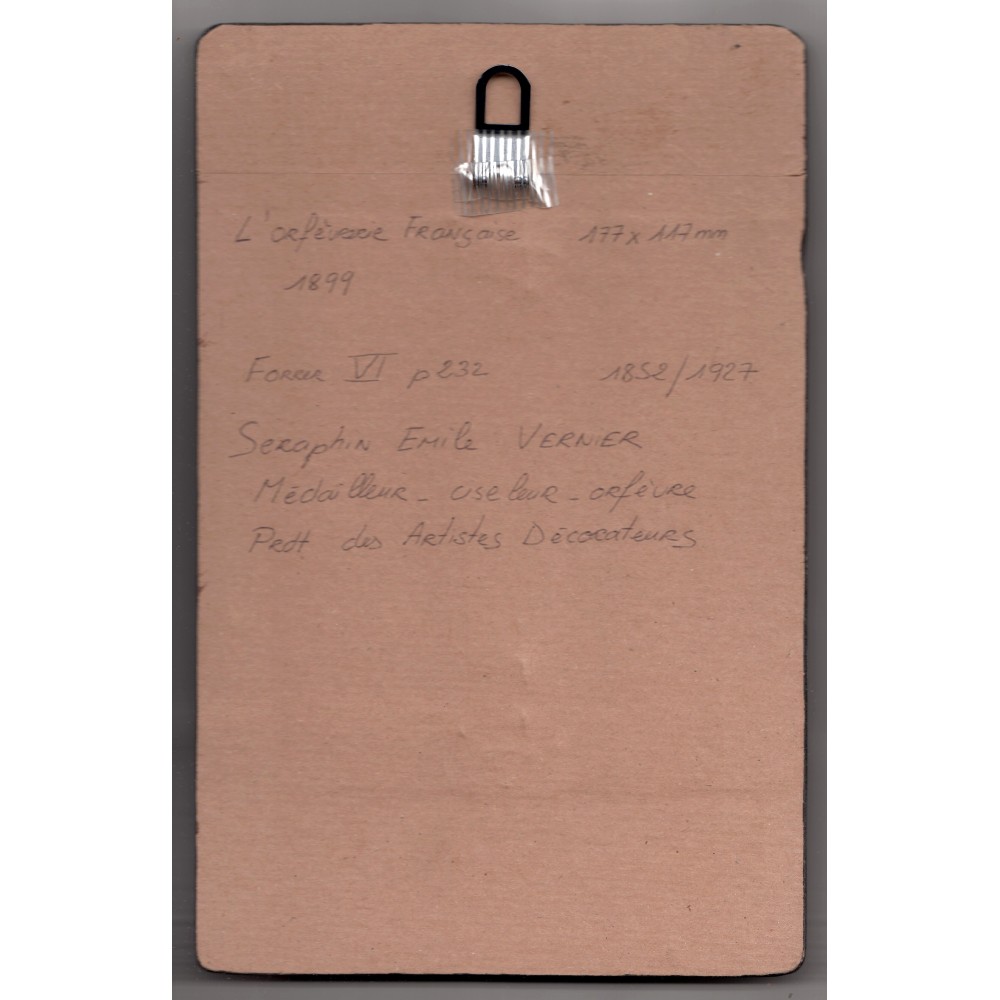 L'orfèverie Française 177 x 117 mm
1899
Forrer VI p 232 1852/1927
Seraphin Emile VERNIER
Médailleur - ciseleur - orfèvre
Prdt des Artistes Décorateurs